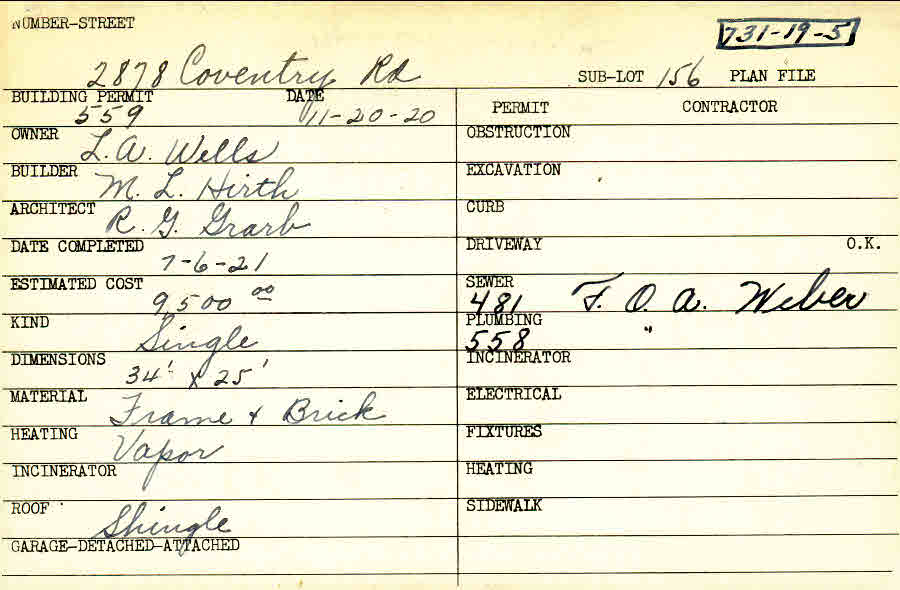 NUMBER-STREET
731-19-5
2878 Coventry Rd SUB-LOT 156 PLAN FILE
BUILDING PERMIT DATE
559 11-20-20
PERMIT CONTRACTOR
OWNER L. A. Wells
OBSTRUCTION
BUILDER M. L. Hirth
EXCAVATION
ARCHITECT R. G. Grarb
CURB
DATE COMPLETED
7-6-21
DRIVEWAY O.K.
ESTIMATED COST
9,500 00
SEWER
481 F. O. A. Weber
KIND Single
PLUMBING
558 "
DIMENSIONS
34' x 25'
INCINERATOR
MATERIAL Frame & Brick
ELECTRICAL
HEATING Vapor
FIXTURES
INCINERATOR
HEATING
ROOF Shingle
SIDEWALK
GARAGE-DETACHED-ATTACHED